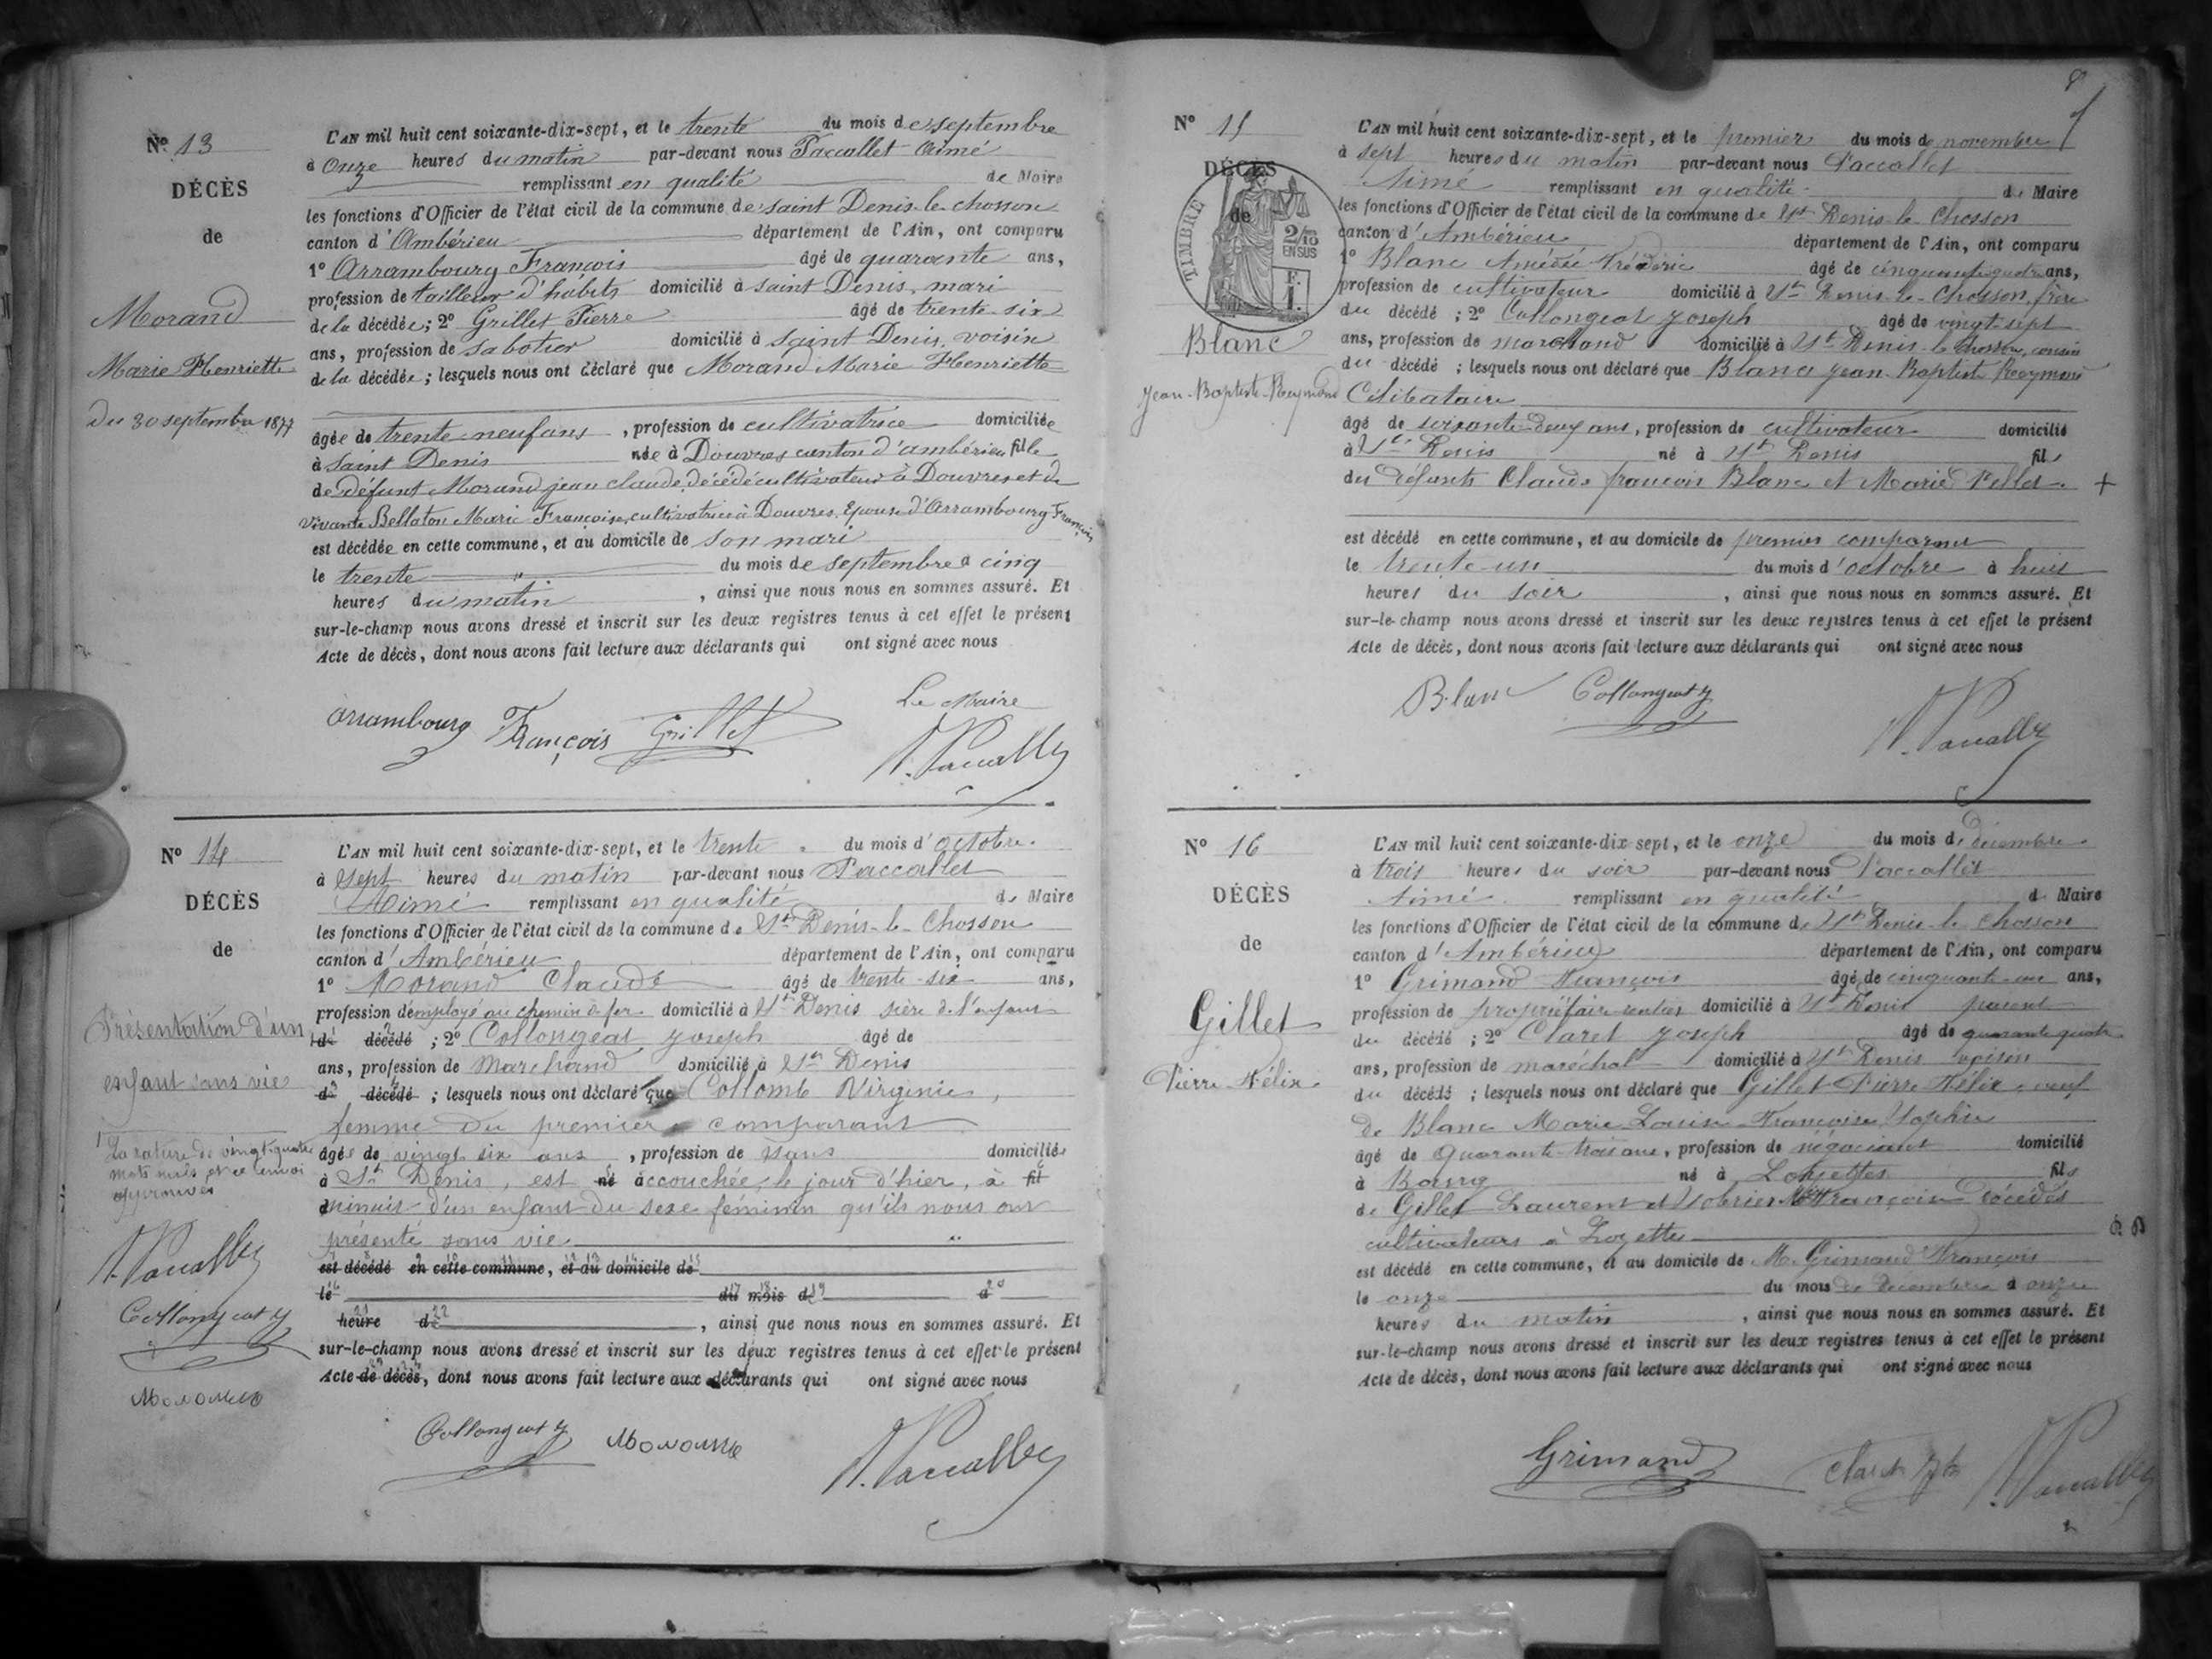 Nº 13
DÉCÈS
de
Morand
Marie Henriette
Du 30 septembre 1877
L'AN mil huit cent soixante-dix-sept, et le trente du mois de septembre
à onze heures du matin par-devant nous Paccallet Aimé
remplissant en qualité de Maire
les fonctions d'Officier de l'état civil de la commune de saint Denis-le-chosson
canton d'Ambérieu département de l'Ain, ont comparu
1º Arrambourg François âgé de quarante ans,
profession de tailleur d'habits domicilié à saint Denis, mari
de la décédée; 2º Grillet Pierre âgé de trente six
ans, profession de sabotier domicilié à saint Denis, voisin
de la décédée; lesquels nous ont déclaré que Morand Marie Henriette
âgée de trente-neuf ans, profession de cultivatrice domiciliée
à saint Denis née à Douvres canton d'ambérieu fille
de défunt Morand jean claude, décédé cultivateur à Douvres et de
vivante Bellaton Marie Françoise, cultivatrice à Douvres, Epouse d'Arrambourg François
est décédée en cette commune, et au domicile de son mari
le trente du mois de septembre à cinq
heures du matin, ainsi que nous nous en sommes assuré. Et
sur-le-champ nous avons dressé et inscrit sur les deux registres tenus à cet effet le présent
Acte de décès, dont nous avons fait lecture aux déclarants qui ont signé avec nous
Le Maire
Arrambourg François Grillet A. Paccallet
Nº 14
DÉCÈS
de
Présentation d'un
enfant sans vie
La rature de vingt quatre
mots nuls et ce renvoi
approuvés
A. Paccallet
Collongeat J
L'AN mil huit cent soixante-dix-sept, et le trente du mois d'octobre
à sept heures du matin par-devant nous Paccallet
Aimé remplissant en qualité de Maire
les fonctions d'Officier de l'état civil de la commune de St Denis-le-Chosson
canton d'Ambérieu département de l'Ain, ont comparu
1º Morand Claude âgé de trente-six ans,
profession d'employé au chemin de fer domicilié à St Denis père de l'enfant
d décédé; 2º Collongeat Joseph âgé de
ans, profession de Marchand domicilié à St Denis
d décédé; lesquels nous ont déclaré que Collomb Virginie,
femme du premier comparant
âgée de vingt six ans, profession de sans domiciliée
à St Denis, est né accouchée, le jour d'hier, à fil
minuit d'un enfant du sexe féminin qu'ils nous ont
présenté sans vie
est décédé en cette commune, et au domicile de
le du mois d à
heure d, ainsi que nous nous en sommes assuré. Et
sur-le-champ nous avons dressé et inscrit sur les deux registres tenus à cet effet le présent
Acte de décès, dont nous avons fait lecture aux déclarants qui ont signé avec nous
Collongeat J A. Paccallet
Nº 15
DÉCÈS
de
TIMBRE
2/10
EN SUS
Blanc
Jean-Baptiste-Reymond
L'AN mil huit cent soixante-dix-sept, et le premier du mois de novembre
à sept heures du matin par-devant nous Paccallet
Aimé remplissant en qualité de Maire
les fonctions d'Officier de l'état civil de la commune de St Denis-le-Chosson
canton d'Ambérieu département de l'Ain, ont comparu
1º Blanc Amédée Frédéric âgé de cinquante quatre ans,
profession de cultivateur domicilié à St Denis-le-Chosson, frère
du décédé; 2º Collongeat Joseph âgé de vingt-sept
ans, profession de marchand domicilié à St Denis-le-Chosson, cousin
du décédé; lesquels nous ont déclaré que Blanc Jean-Baptiste Reymond
Célibataire
âgé de soixante-deux ans, profession de cultivateur domicilié
à St Denis né à St Denis fils
des défunts Claude françois Blanc et Marie Pellet
est décédé en cette commune, et au domicile de premier comparant
le trente-un du mois d'octobre à huit
heures du soir, ainsi que nous nous en sommes assuré. Et
sur-le-champ nous avons dressé et inscrit sur les deux registres tenus à cet effet le présent
Acte de décès, dont nous avons fait lecture aux déclarants qui ont signé avec nous
Blanc Collongeat J A. Paccallet
Nº 16
DÉCÈS
de
Gillet
Pierre Félix
L'AN mil huit cent soixante-dix-sept, et le onze du mois de décembre
à trois heures du soir par-devant nous Paccallet
Aimé remplissant en qualité de Maire
les fonctions d'Officier de l'état civil de la commune de St Denis-le-Chosson
canton d'Ambérieu département de l'Ain, ont comparu
1º Grimand François âgé de cinquante-un ans,
profession de propriétaire rentier domicilié à St Denis parent
du décédé; 2º Claret Joseph âgé de quarante quatre
ans, profession de maréchal domicilié à St Denis voisin
du décédé; lesquels nous ont déclaré que Gillet Pierre Félix veuf
de Blanc Marie Louise Françoise Sophie
âgé de quarante trois ans, profession de négociant domicilié
à Bourg né à Loyettes fils
de Gillet Laurent et Françoise décédés
cultivateurs à Loyettes
est décédé en cette commune, et au domicile de M. Grimand François
le onze du mois de décembre à onze
heures du matin, ainsi que nous nous en sommes assuré. Et
sur-le-champ nous avons dressé et inscrit sur les deux registres tenus à cet effet le présent
Acte de décès, dont nous avons fait lecture aux déclarants qui ont signé avec nous
Grimand Claret A. Paccallet